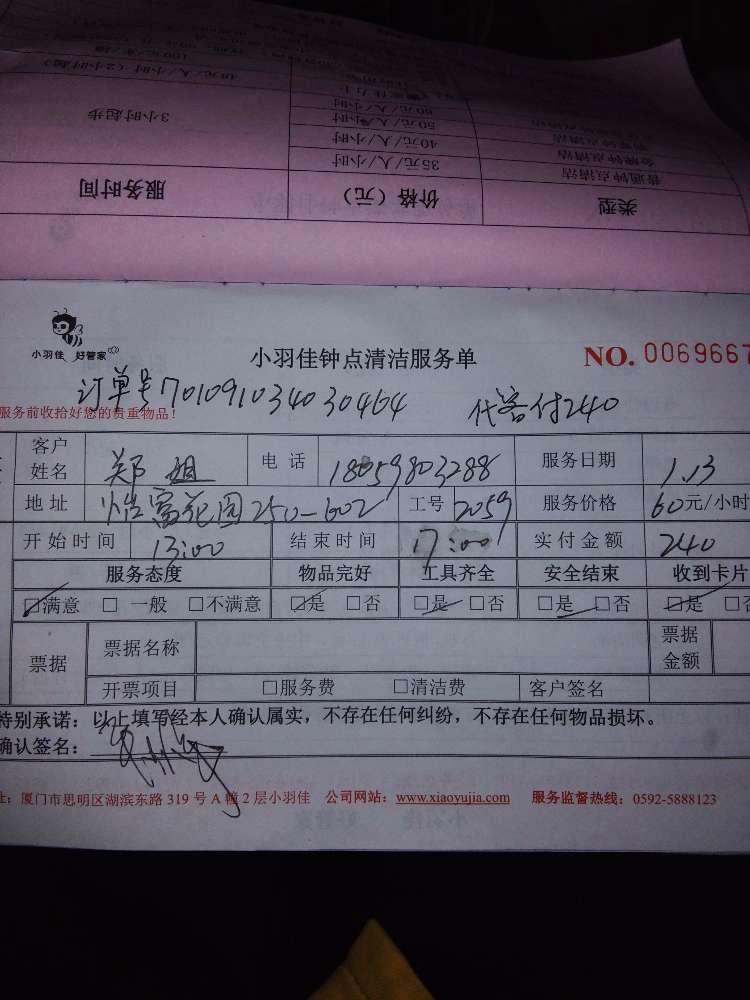 类型 价格（元） 服务时间
普通钟点清洁 35元/人/小时 3小时起步
金牌钟点清洁 40元/人/小时
50元/人/小时
60元/人/小时
小羽佳 好管家
小羽佳钟点清洁服务单 NO. 0069667
订单号701091034030464 代客付240
服务前收拾好您的贵重物品！
客户姓名 郑姐 电话 18059803288 服务日期 1.13
地址 怡富花园250-602 工号 2059 服务价格 60元/小时
开始时间 13:00 结束时间 17:00 实付金额 240
服务态度 物品完好 工具齐全 安全结束 收到卡片
☑满意 □一般 □不满意 ☑是 □否 ☑是 □否 ☑是 □否 ☑是
票据 票据名称 票据金额
开票项目 □服务费 □清洁费 客户签名
特别承诺：以上填写经本人确认属实，不存在任何纠纷，不存在任何物品损坏。
确认签名：
厦门市思明区湖滨东路319号A幢2层小羽佳 公司网站：www.xiaoyujia.com 服务监督热线：0592-5888123